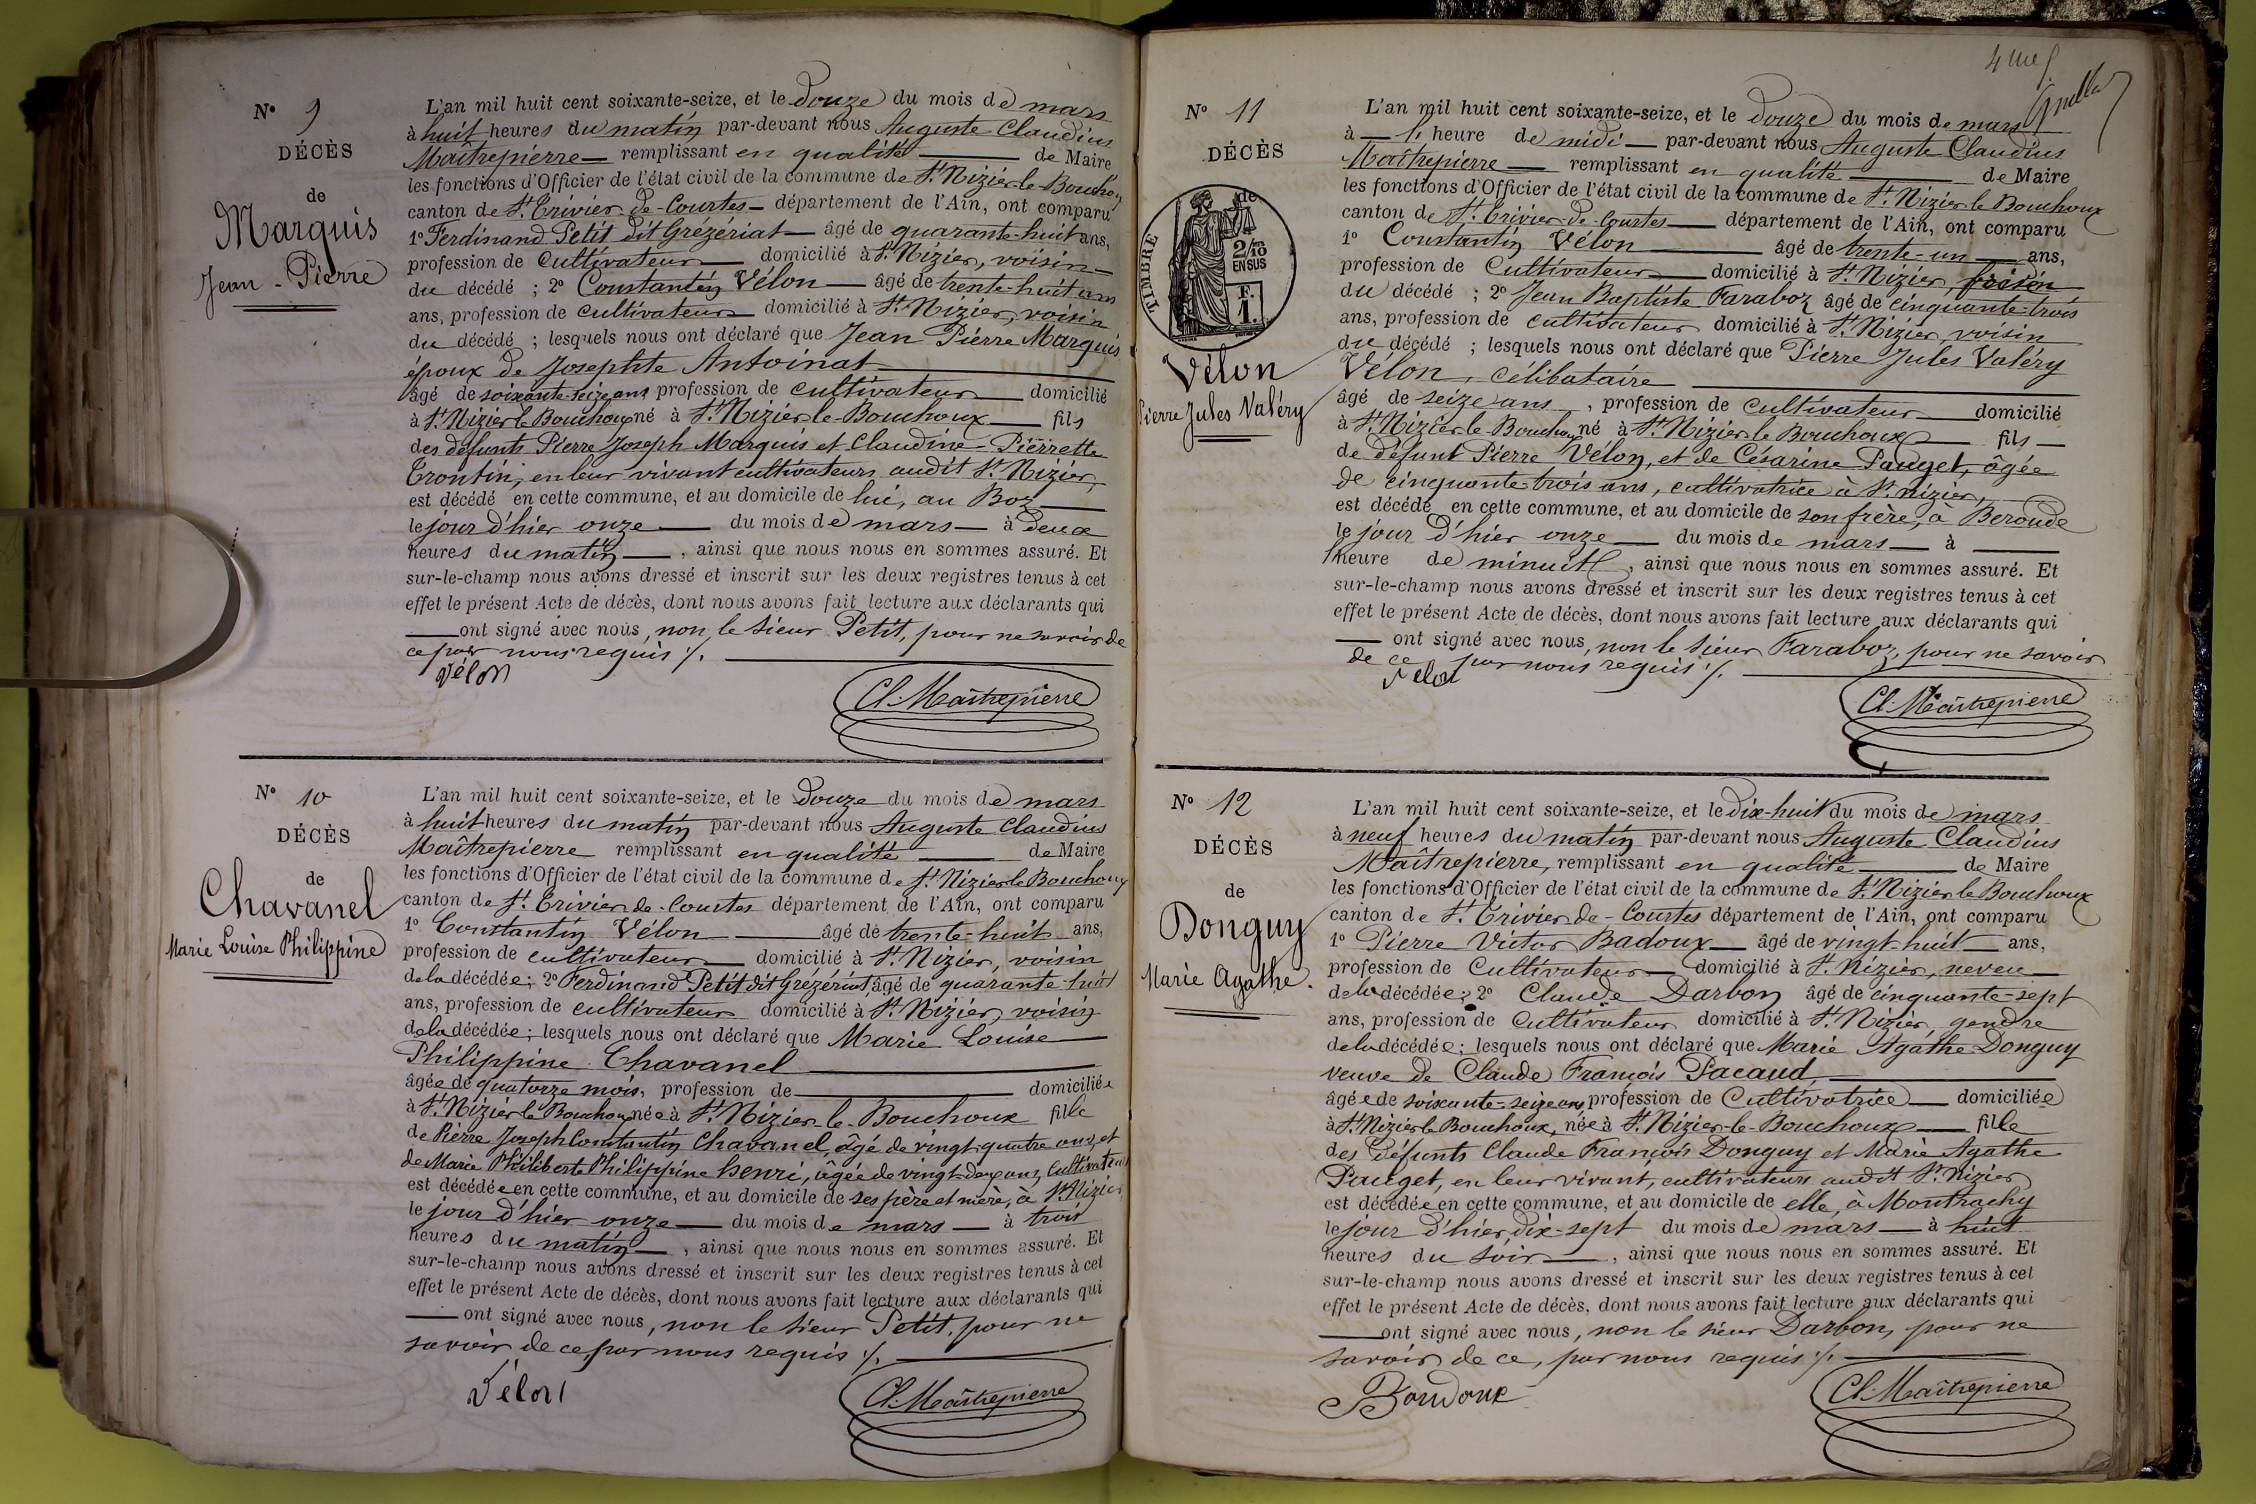 N° 9
DÉCÈS
de
Marquis
Jean-Pierre
L'an mil huit cent soixante-seize, et le douze du mois de mars
à huit heures du matin par-devant nous Auguste Claudius
Maîtrepierre remplissant en qualité de Maire
les fonctions d'Officier de l'état civil de la commune de St Nizier-le-Bouchoux
canton de St Trivier-de-Courtes département de l'Ain, ont comparu
1° Ferdinand Petit dit Grézériat âgé de quarante-huit ans,
profession de cultivateur domicilié à St Nizier, voisin
du décédé ; 2° Constantin Vélon âgé de trente-huit ans
ans, profession de cultivateur domicilié à St Nizier, voisin
du décédé ; lesquels nous ont déclaré que Jean Pierre Marquis
époux de Josephte Antoinat
âgé de soixante-seize ans profession de cultivateur domicilié
à St Nizier le Bouchoux né à St Nizier-le-Bouchoux fils
des défunts Pierre Joseph Marquis et Claudine-Pierrette
Trontin, en leur vivant cultivateurs audit St Nizier,
est décédé en cette commune, et au domicile de lui, au Boz
le jour d'hier onze du mois de mars à deux
heures du matin, ainsi que nous nous en sommes assuré. Et
sur-le-champ nous avons dressé et inscrit sur les deux registres tenus à cet
effet le présent Acte de décès, dont nous avons fait lecture aux déclarants qui
ont signé avec nous, non le sieur Petit, pour ne savoir de
ce par nous requis ./.
Vélon
Cl. Maîtrepierre
N° 10
DÉCÈS
de
Chavanel
Marie Louise Philippine
L'an mil huit cent soixante-seize, et le douze du mois de mars
à huit heures du matin par-devant nous Auguste Claudius
Maîtrepierre remplissant en qualité de Maire
les fonctions d'Officier de l'état civil de la commune de St Nizier le Bouchoux
canton de St Trivier-de-Courtes département de l'Ain, ont comparu
1° Constantin Vélon âgé de trente-huit ans,
profession de cultivateur domicilié à St Nizier, voisin
de la décédée ; 2° Ferdinand Petit dit Grézériat, âgé de quarante-huit
ans, profession de cultivateur domicilié à St Nizier, voisin
de la décédée ; lesquels nous ont déclaré que Marie Louise
Philippine Chavanel
âgée de quatorze mois, profession de domiciliée
à St Nizier le Bouchoux née à St Nizier-le-Bouchoux fille
de Pierre Joseph Constantin Chavanel, âgé de vingt-quatre ans, et
de Marie Philiberte Philippine Henri, âgée de vingt-deux ans, cultivateurs
est décédée en cette commune, et au domicile de ses père et mère, à St Nizier
le jour d'hier onze du mois de mars à trois
heures du matin, ainsi que nous nous en sommes assuré. Et
sur-le-champ nous avons dressé et inscrit sur les deux registres tenus à cet
effet le présent Acte de décès, dont nous avons fait lecture aux déclarants qui
ont signé avec nous, non le sieur Petit, pour ne
savoir de ce, par nous requis ./.
Vélon
Cl. Maîtrepierre
N° 11
DÉCÈS
de
TIMBRE
2/10
EN SUS
F.
1.
Vélon
Pierre Jules Valéry
L'an mil huit cent soixante-seize, et le douze du mois de mars
à 1 heure de midi par-devant nous Auguste Claudius
Maîtrepierre remplissant en qualité de Maire
les fonctions d'Officier de l'état civil de la commune de St Nizier le Bouchoux
canton de St Trivier-de-Courtes département de l'Ain, ont comparu
1° Constantin Vélon âgé de trente-un ans,
profession de cultivateur domicilié à St Nizier,
du décédé ; 2° Jean Baptiste Faraboz âgé de cinquante-trois
ans, profession de cultivateur domicilié à St Nizier, voisin
du décédé ; lesquels nous ont déclaré que Pierre Jules Valéry
Vélon, célibataire
âgé de seize ans, profession de cultivateur domicilié
à St Nizier le Bouchoux né à St Nizier le Bouchoux fils
de défunt Pierre Vélon, et de Césarine Pauget, âgée
de cinquante trois ans, cultivatrice à St nizier,
est décédé en cette commune, et au domicile de son frère, à Beronde
le jour d'hier onze du mois de mars à
heure de minuit, ainsi que nous nous en sommes assuré. Et
sur-le-champ nous avons dressé et inscrit sur les deux registres tenus à cet
effet le présent Acte de décès, dont nous avons fait lecture aux déclarants qui
ont signé avec nous, non le sieur Faraboz, pour ne savoir
de ce par nous requis ./.
Vélon
Cl. Maîtrepierre
N° 12
DÉCÈS
de
Donguy
Marie Agathe.
L'an mil huit cent soixante-seize, et le dix-huit du mois de mars
à neuf heures du matin par-devant nous Auguste Claudius
Maîtrepierre, remplissant en qualité de Maire
les fonctions d'Officier de l'état civil de la commune de St Nizier le Bouchoux
canton de St Trivier-de-Courtes département de l'Ain, ont comparu
1° Pierre Victor Badoux âgé de vingt-huit ans,
profession de cultivateur domicilié à St Nizier, neveu
de la décédée ; 2° Claude Darbon âgé de cinquante-sept
ans, profession de cultivateur domicilié à St Nizier, gendre
de la décédée ; lesquels nous ont déclaré que Marie Agathe Donguy
veuve de Claude François Pacaud,
âgée de soixante-seize ans, profession de Cultivatrice domiciliée
à St Nizier le Bouchoux, née à St Nizier-le-Bouchoux fille
des défunts Claude François Donguy et Marie Agathe
Pauget, en leur vivant, cultivateurs audit St Nizier
est décédée en cette commune, et au domicile de elle, à Montrachy
le jour d'hier, dix-sept du mois de mars à huit
heures du soir, ainsi que nous nous en sommes assuré. Et
sur-le-champ nous avons dressé et inscrit sur les deux registres tenus à cet
effet le présent Acte de décès, dont nous avons fait lecture aux déclarants qui
ont signé avec nous, non le sieur Darbon, pour ne
savoir de ce, par nous requis ./.
Badoux
Cl. Maîtrepierre